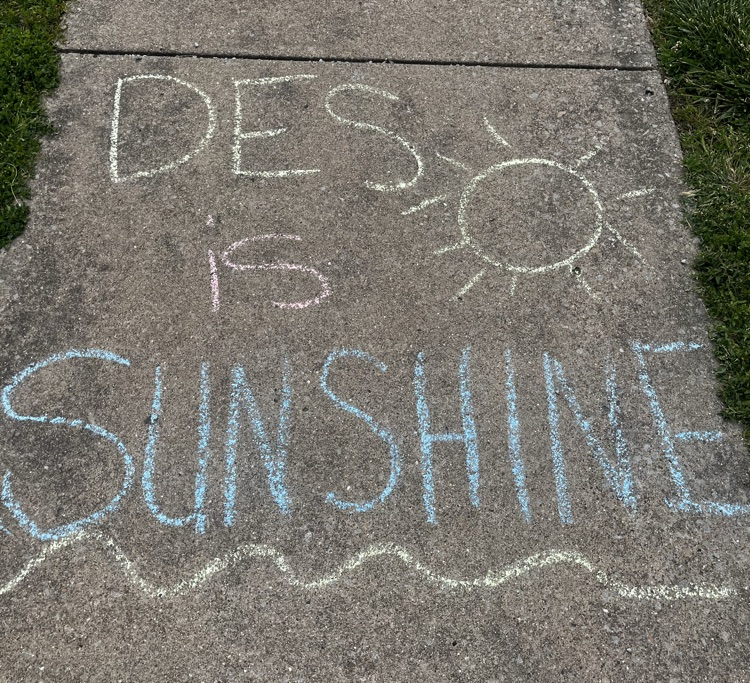 DES
is
SUNSHINE